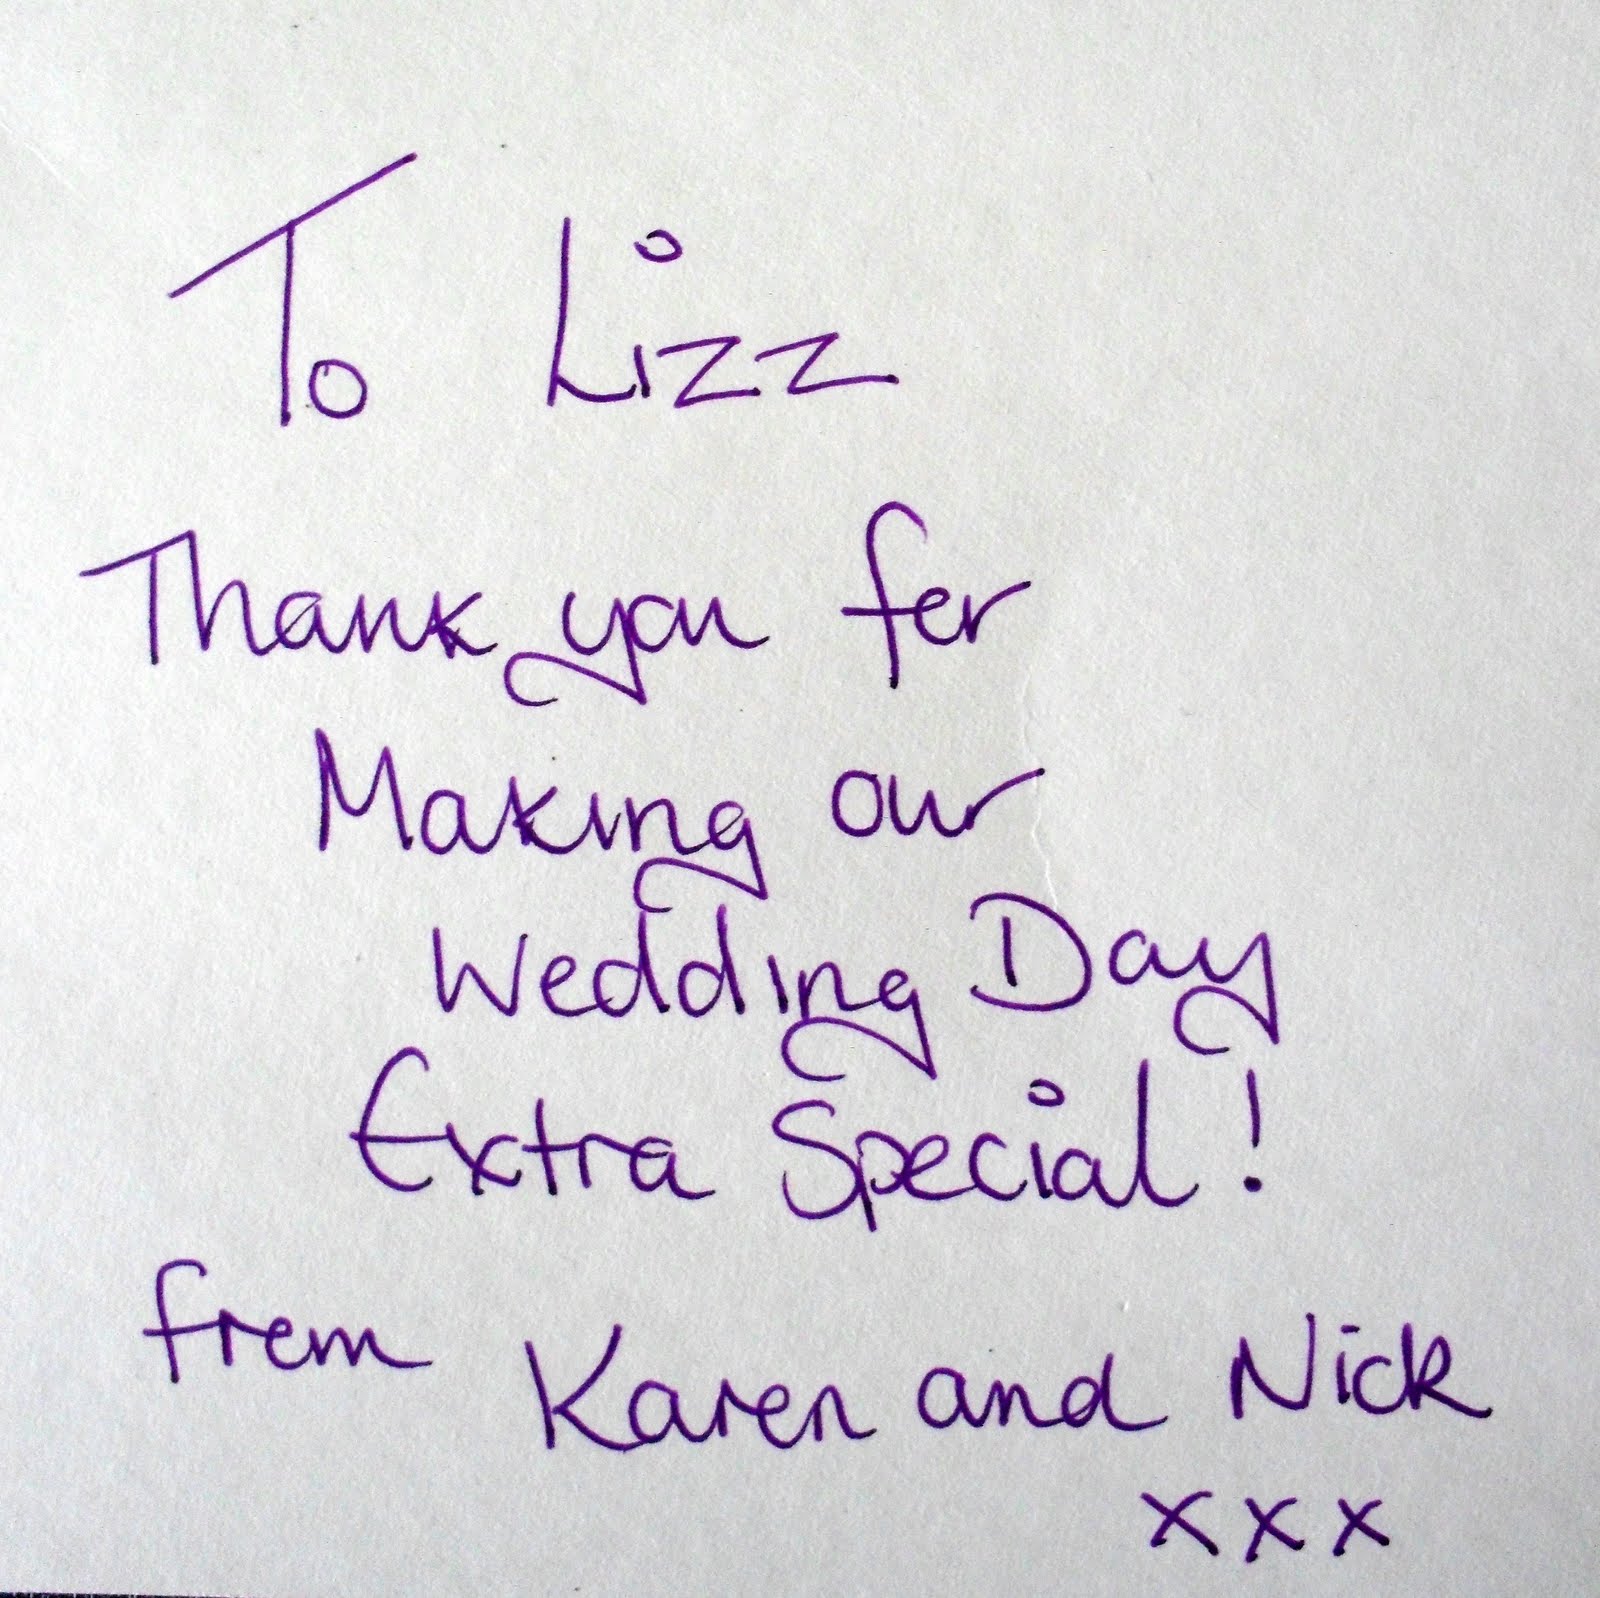 To Lizz
Thank you for
Making our
Wedding Day
Extra Special!
from Karen and Nick
xxx